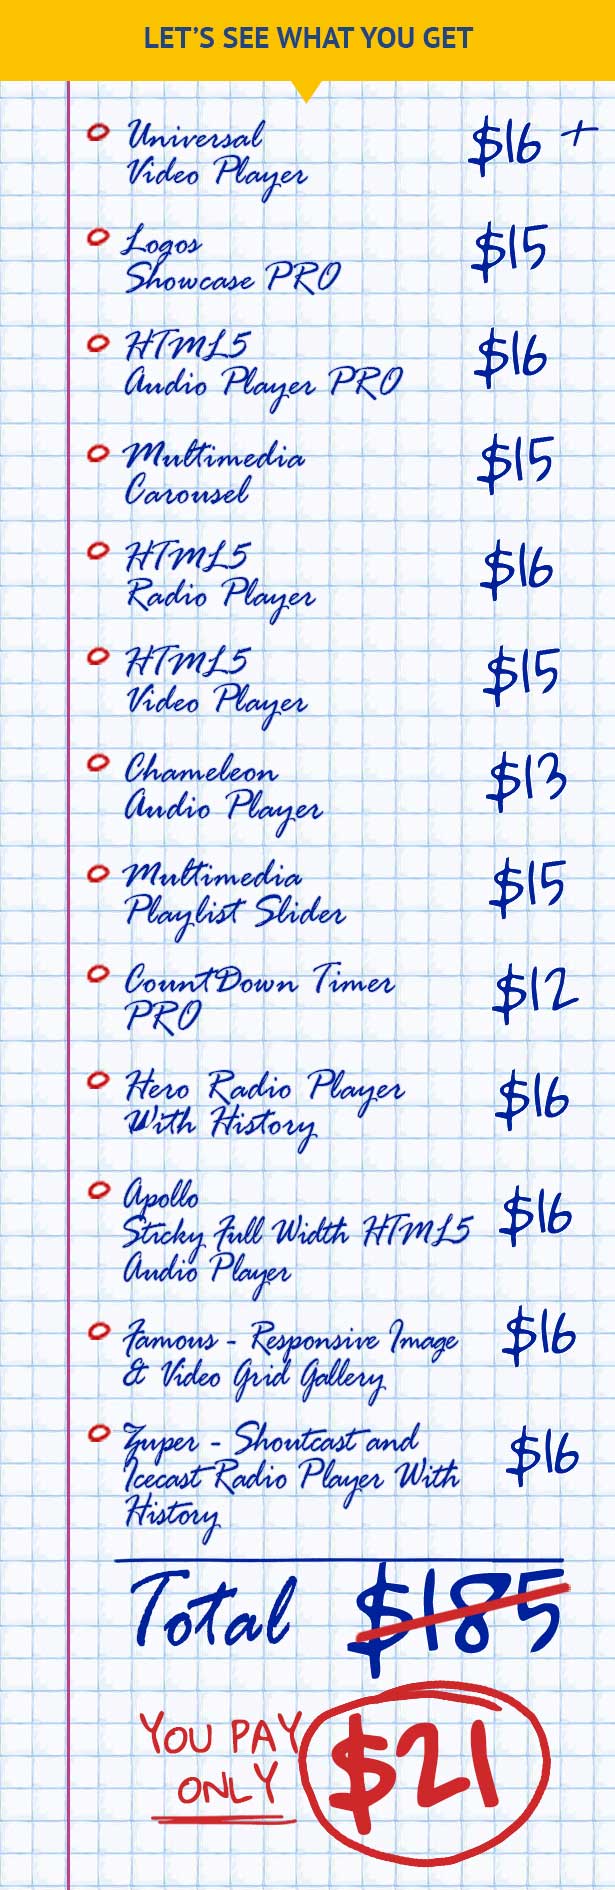 LET'S SEE WHAT YOU GET
Universal
Video Player
$16 +
Logos
Showcase PRO
$15
HTML5
Audio Player PRO
$16
Multimedia
Carousel
$15
HTML5
Radio Player
$16
HTML5
Video Player
$15
Chameleon
Audio Player
$13
Multimedia
Playlist Slider
$15
CountDown Timer
PRO
$12
Hero Radio Player
With History
$16
Apollo
Sticky Full Width HTML5
Audio Player
$16
Famous - Responsive Image
& Video Grid Gallery
$16
Zuper - Shoutcast and
Icecast Radio Player With
History
$16
Total $185
YOU PAY
ONLY
$21